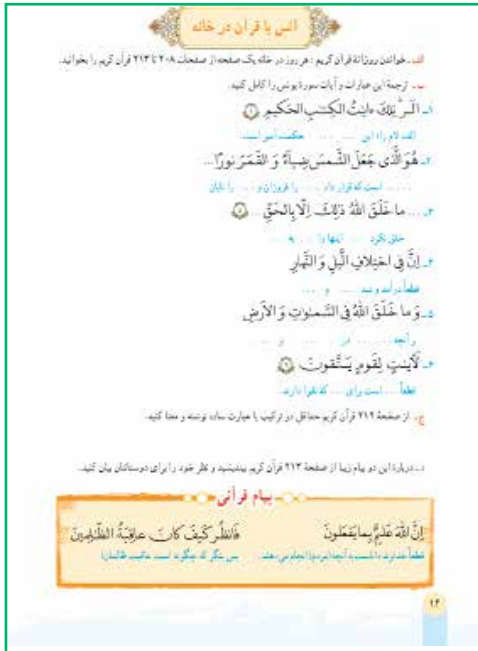 انس با قرآن در خانه
الف ـ خواندن روزانهٔ قرآن کریم : هر روز در خانه یک صفحه از صفحات ۲۰۸ تا ۲۱۳ قرآن کریم را بخوانید.
ب ـ ترجمهٔ این عبارات و آیات سورهٔ یونس را کامل کنید.
۱ـ الٓرٰ تِلكَ ءایٰتُ الكِتٰبِ الحَكیمِ ۱
الف لام را، این ... ... حکمت آمیز است.
۲ـ هُوَ الَّذی جَعَلَ الشَّمسَ ضِیاءً وَ القَمَرَ نورًا...
... است که قرار داد ... را فروزان و ... را تابان
۳ـ ... ما خَلَقَ اللهُ ذٰلِكَ اِلّا بِالحَقِّ ... ۵
خلق نکرد ... اینها را ... به ...
۴ـ اِنَّ فِی اختِلافِ الَّیلِ وَ النَّهارِ
قطعاً در آمد و شد ... و ...
۵ـ وَ ما خَلَقَ اللهُ فِی السَّمٰوٰتِ وَ الاَرضِ
و آنچه ... در ... و ...
۶ـ لَآیٰتٍ لِقَومٍ یَتَّقونَ ۶
قطعاً ... است برای ... که تقوا دارند.
ج ـ از صفحهٔ ۲۱۹ قرآن کریم حداقل دو ترکیب یا عبارت ساده نوشته و معنا کنید.
د ـ دربارهٔ این دو پیام زیبا از صفحهٔ ۲۱۳ قرآن کریم بیندیشید و نظر خود را برای دوستانتان بیان کنید.
پیام قرآنی
اِنَّ اللهَ عَلیمٌ بِما یَفعَلونَ فَانظُر كَیفَ كانَ عاقِبَةُ الظّٰلِمینَ
قطعاً خداوند دانست به آنچه (مردم) انجام می‌دهند. پس بنگر که چگونه است عاقبت ظالمان!
۱۴